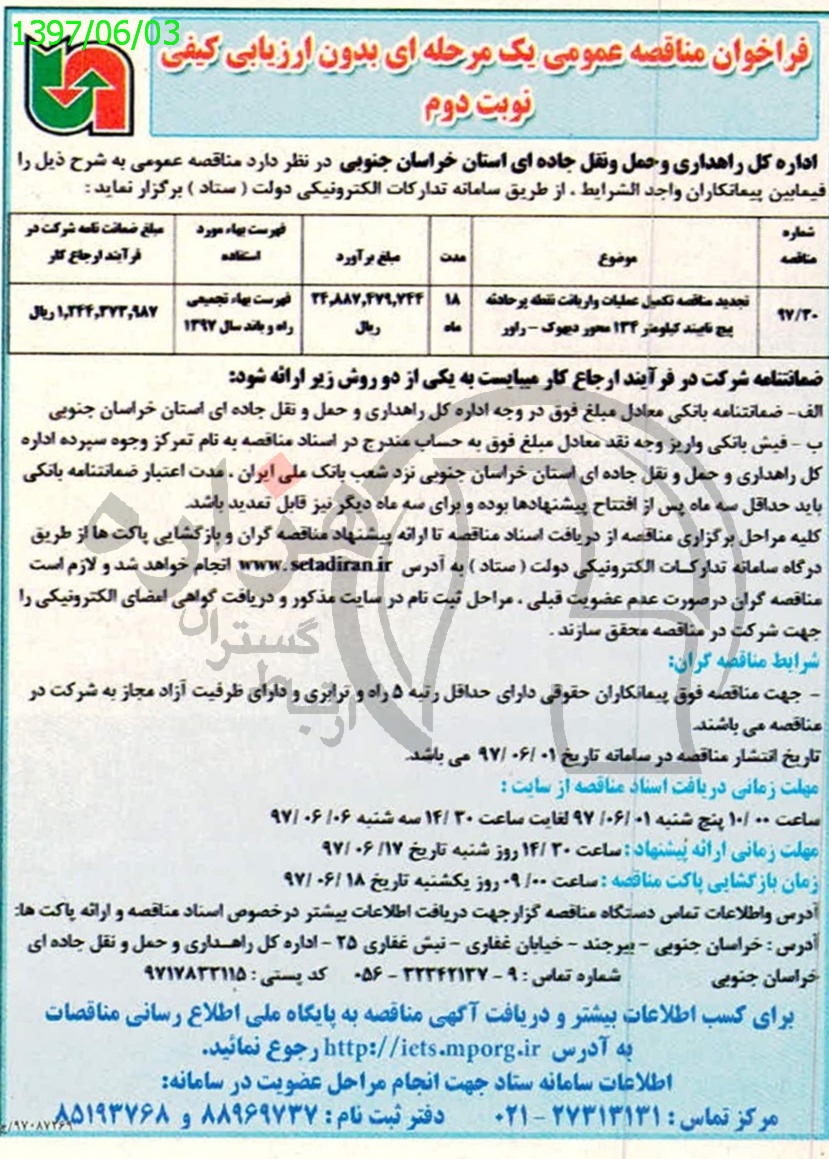 1397/06/03
فراخوان مناقصه عمومی یک مرحله ای بدون ارزیابی کیفی
نوبت دوم
اداره کل راهداری و حمل ونقل جاده ای استان خراسان جنوبی در نظر دارد مناقصه عمومی به شرح ذیل را
فیمابین پیمانکاران واجد الشرایط ، از طریق سامانه تدارکات الکترونیکی دولت ( ستاد ) برگزار نماید :
شماره مناقصه	موضوع	مدت	مبلغ برآورد	فهرست بهاء مورد استفاده	مبلغ ضمانت نامه شرکت در فرآیند ارجاع کار
۹۷/۳۰	تجدید مناقصه تکمیل عملیات واریانت نقطه پرحادثه پیچ نایبند کیلومتر ۱۳۴ محور دیهوک - راور	۱۸ ماه	۲۴,۸۸۷,۴۷۹,۷۴۴ ریال	فهرست بهاء تجمیعی راه و باند سال ۱۳۹۷	۱,۲۴۴,۳۷۳,۹۸۷ ریال
ضمانتنامه شرکت در فرآیند ارجاع کار میبایست به یکی از دو روش زیر ارائه شود:
الف- ضمانتنامه بانکی معادل مبلغ فوق در وجه اداره کل راهداری و حمل و نقل جاده ای استان خراسان جنوبی
ب - فیش بانکی واریز وجه نقد معادل مبلغ فوق به حساب مندرج در اسناد مناقصه به نام تمرکز وجوه سپرده اداره
کل راهداری و حمل و نقل جاده ای استان خراسان جنوبی نزد شعب بانک ملی ایران . مدت اعتبار ضمانتنامه بانکی
باید حداقل سه ماه پس از افتتاح پیشنهادها بوده و برای سه ماه دیگر نیز قابل تمدید باشد.
کلیه مراحل برگزاری مناقصه از دریافت اسناد مناقصه تا ارائه پیشنهاد مناقصه گران و بازگشایی پاکت ها از طریق
درگاه سامانه تدارکات الکترونیکی دولت ( ستاد ) به آدرس www.setadiran.ir انجام خواهد شد و لازم است
مناقصه گران درصورت عدم عضویت قبلی ، مراحل ثبت نام در سایت مذکور و دریافت گواهی امضای الکترونیکی را
جهت شرکت در مناقصه محقق سازند .
شرایط مناقصه گران:
- جهت مناقصه فوق پیمانکاران حقوقی دارای حداقل رتبه ۵ راه و ترابری و دارای ظرفیت آزاد مجاز به شرکت در
مناقصه می باشند.
تاریخ انتشار مناقصه در سامانه تاریخ ۰۱ /۰۶ /۹۷ می باشد.
مهلت زمانی دریافت اسناد مناقصه از سایت :
ساعت ۰۰ /۱۰ پنج شنبه ۰۱ /۰۶ /۹۷ لغایت ساعت ۳۰ /۱۴ سه شنبه ۰۶ /۰۶ /۹۷
مهلت زمانی ارائه پیشنهاد : ساعت ۳۰ /۱۴ روز شنبه تاریخ ۱۷ /۰۶ /۹۷
زمان بازگشایی پاکت مناقصه : ساعت ۰۰ /۰۹ روز یکشنبه تاریخ ۱۸ /۰۶ /۹۷
آدرس واطلاعات تماس دستگاه مناقصه گزارجهت دریافت اطلاعات بیشتر درخصوص اسناد مناقصه و ارائه پاکت ها:
آدرس : خراسان جنوبی - بیرجند - خیابان غفاری - نبش غفاری ۲۵ - اداره کل راهداری و حمل و نقل جاده ای
خراسان جنوبی شماره تماس : ۹ - ۳۲۳۴۲۱۳۷ - ۰۵۶ کد پستی : ۹۷۱۷۸۳۳۱۱۵
برای کسب اطلاعات بیشتر و دریافت آگهی مناقصه به پایگاه ملی اطلاع رسانی مناقصات
به آدرس http://iets.mporg.ir رجوع نمائید.
اطلاعات سامانه ستاد جهت انجام مراحل عضویت در سامانه:
مرکز تماس : ۲۷۳۱۳۱۳۱ - ۰۲۱ دفتر ثبت نام : ۸۸۹۶۹۷۳۷ و ۸۵۱۹۳۷۶۸
هزاره
گستران